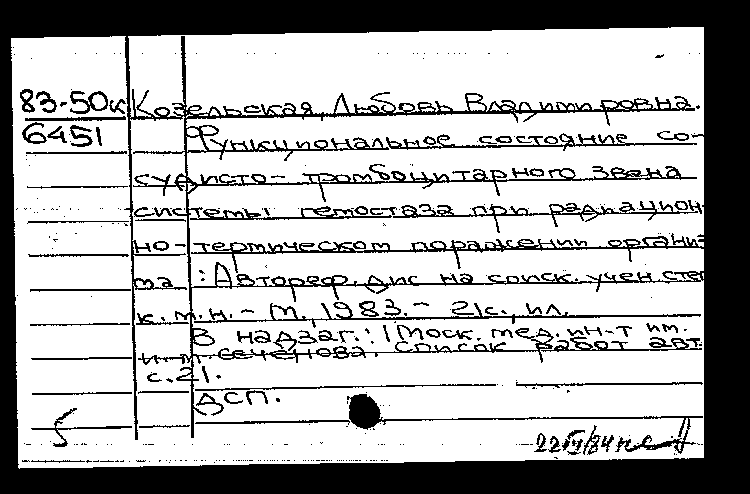 83-50к Козельская, Любовь Владимировна.
6451 Функциональное состояние со-
судисто-тромбоцитарного звена
системы гемостаза при радиацион
но-термическом поражении организ
ма : Автореф. дис на соиск. учен степ
к.м.н. - М., 1983. - 21с., ил.
В надзаг.: 1 Моск. мед. ин-т им.
и.м. Сеченова. Список работ авт.
с. 21.
ДСП.
5